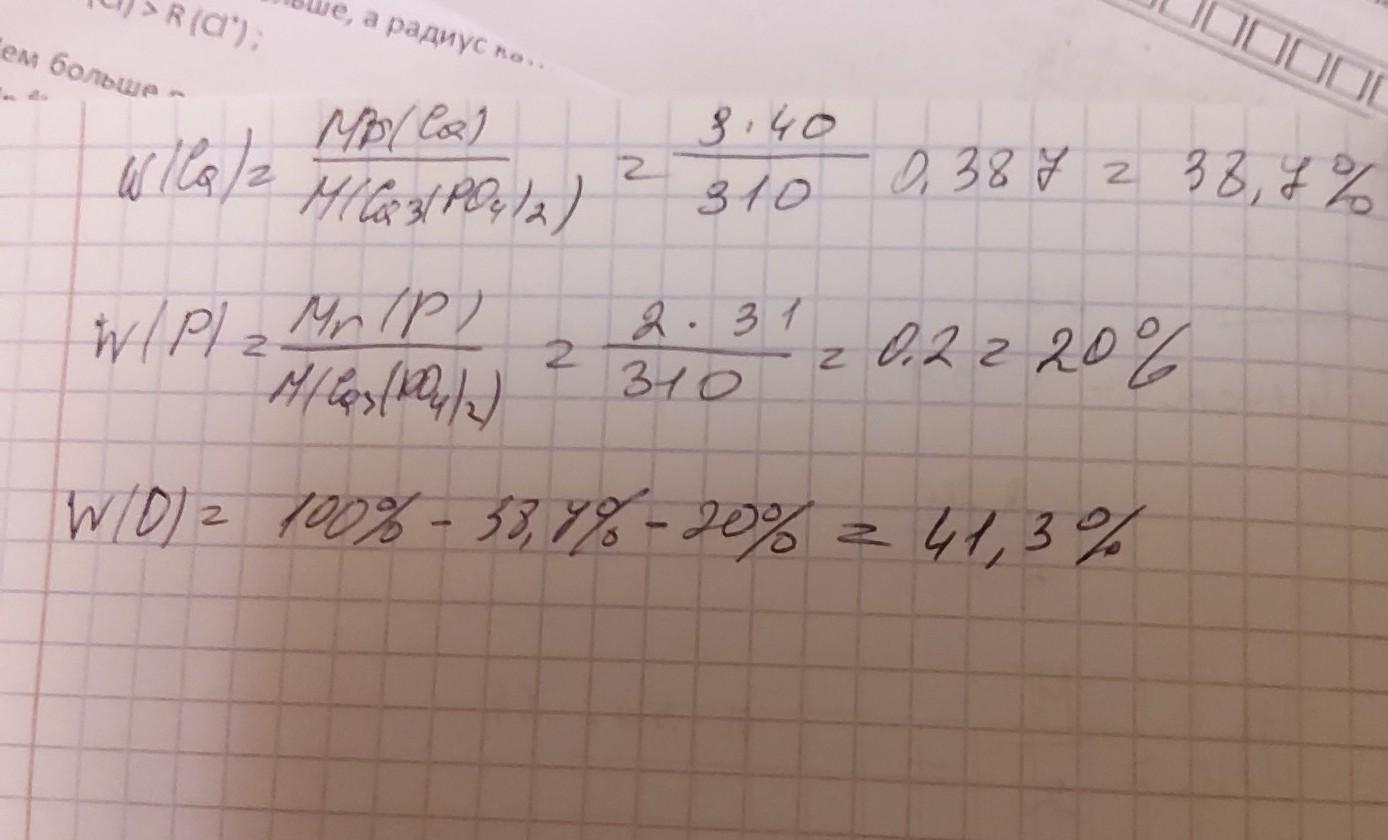 R(Cl⁺);
ьше, а радиус
ем больше
W(Ca) = Mr(Ca) / M(Ca3(PO4)2) = 3·40 / 310 0,387 = 38,7%
W(P) = Mr(P) / M(Ca3(PO4)2) = 2·31 / 310 = 0.2 = 20%
W(O) = 100% - 38,7% - 20% = 41,3%